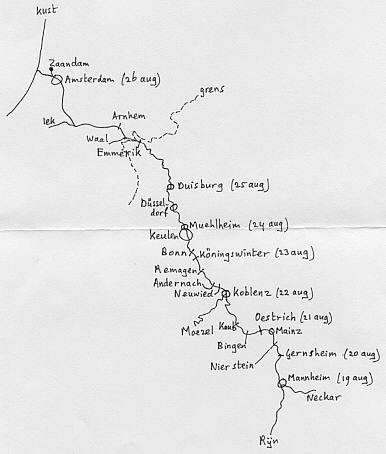 kust
Zaandam
Amsterdam (26 aug)
grens
Arnhem
lek
Waal
Emmerik
Duisburg (25 aug)
Düssel-
dorf
Muehlheim (24 aug)
Keulen
Bonn
Köningswinter (23 aug)
Remagen
Andernach
Neuwied
Koblenz (22 aug)
Oestrich (21 aug)
Moezel
Kaub
Mainz
Bingen
Gernsheim (20 aug)
Nierstein
Mannheim (19 aug)
Neckar
Rijn